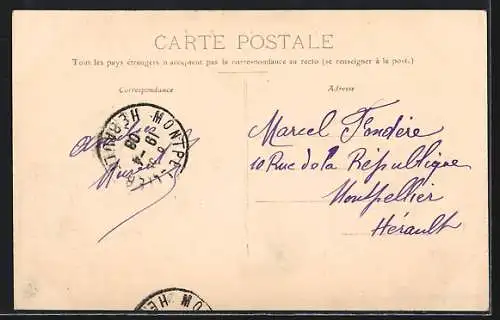 CARTE POSTALE
Tous les pays étrangers n'acceptent pas la correspondance au recto (se renseigner à la poste.)
Correspondance
Adresse
MONTPELLIER HERAULT
9 -4
08
Marcel Fondère
10 Rue de la République
Montpellier
Hérault